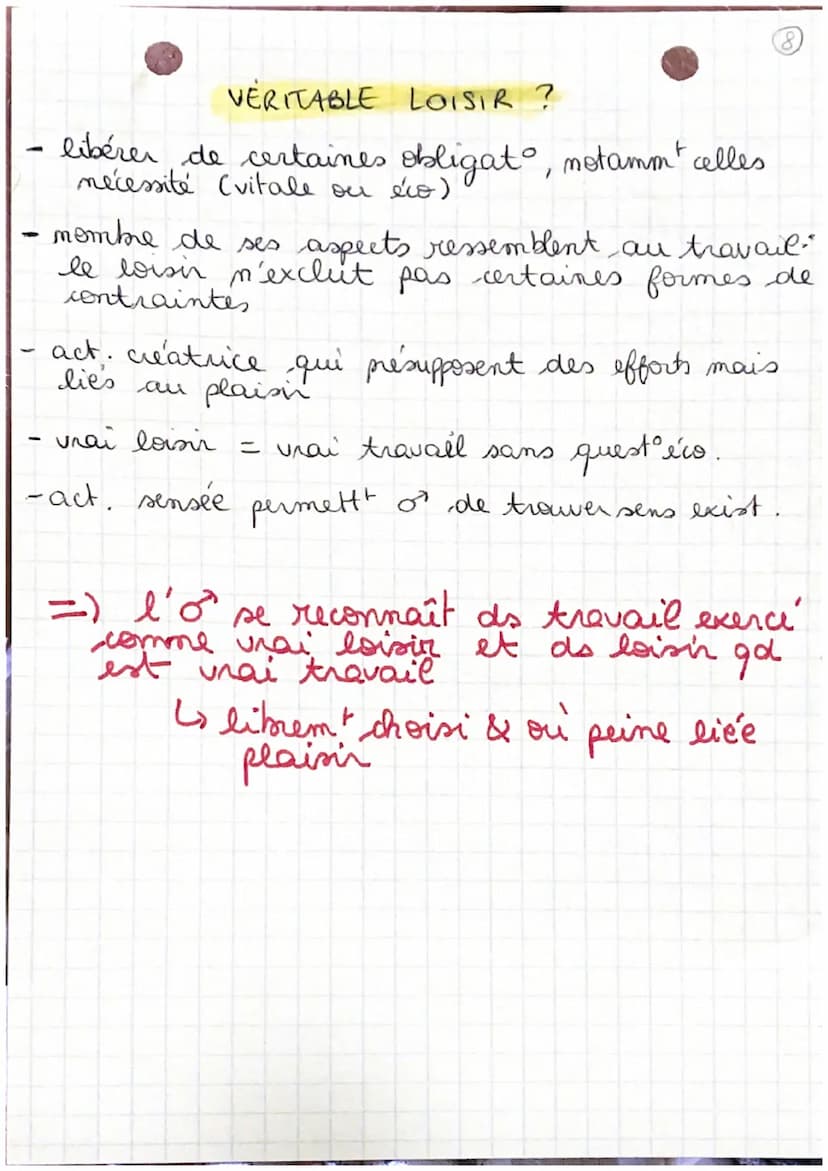 8
VÉRITABLE LOISIR ?
- libérer de certaines obligat°, notammᵗ celles
nécessité (vitale ou éco)
- nombre de ses aspects ressemblent au travail :
le loisir n'exclut pas certaines formes de
contraintes
- act. créatrice qui présupposent des efforts mais
liés au plaisir
- vrai loisir = vrai travail sans quest° éco.
- act. sensée permettᵗ ♂ de trouver sens exist.
=) l'♂ se reconnaît ds travail exercé
comme vrai loisir et ds loisir qd
est vrai travail
↳ libremᵗ choisi & où peine liée
plaisir